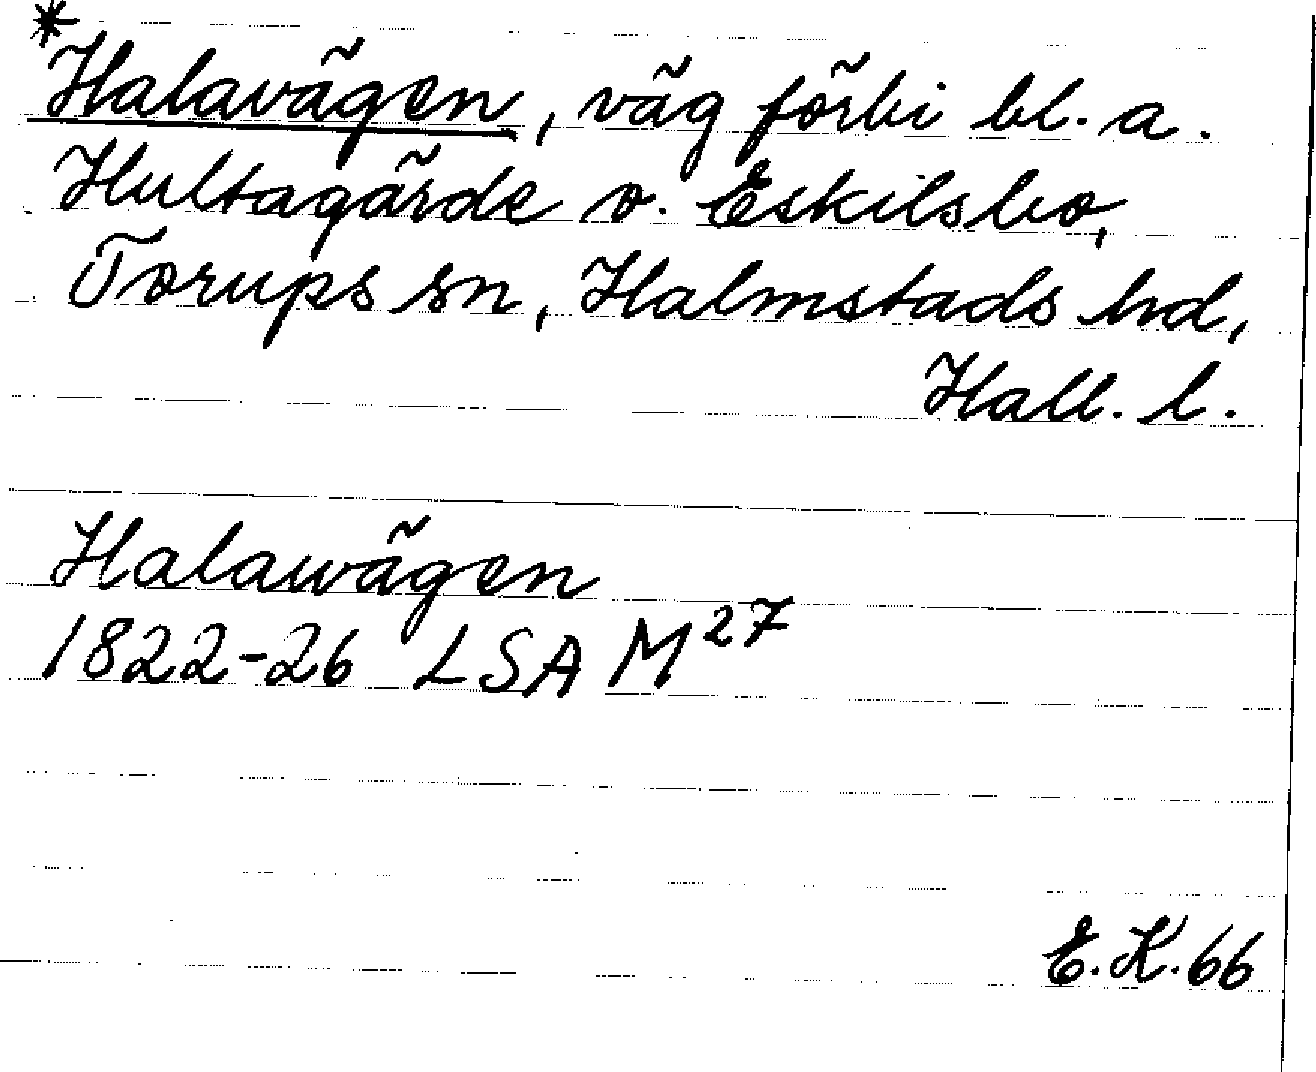 *Halavägen, väg förbi bl. a.
Hultagärde o. Eskilsbo,
Torups sn, Halmstads hd,
Hall. l.
Halawägen
1822-26 LSA M²⁷
E.K. 66